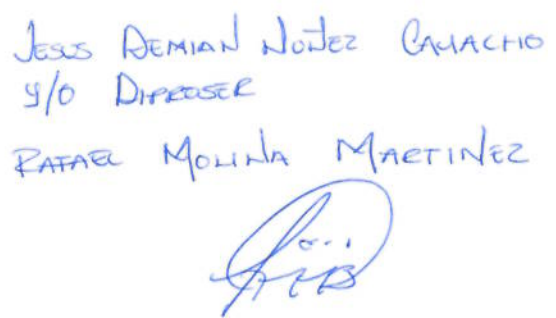 Jesus Demian Nuñez Camacho
y/o Diproser
Rafael Molina Martinez